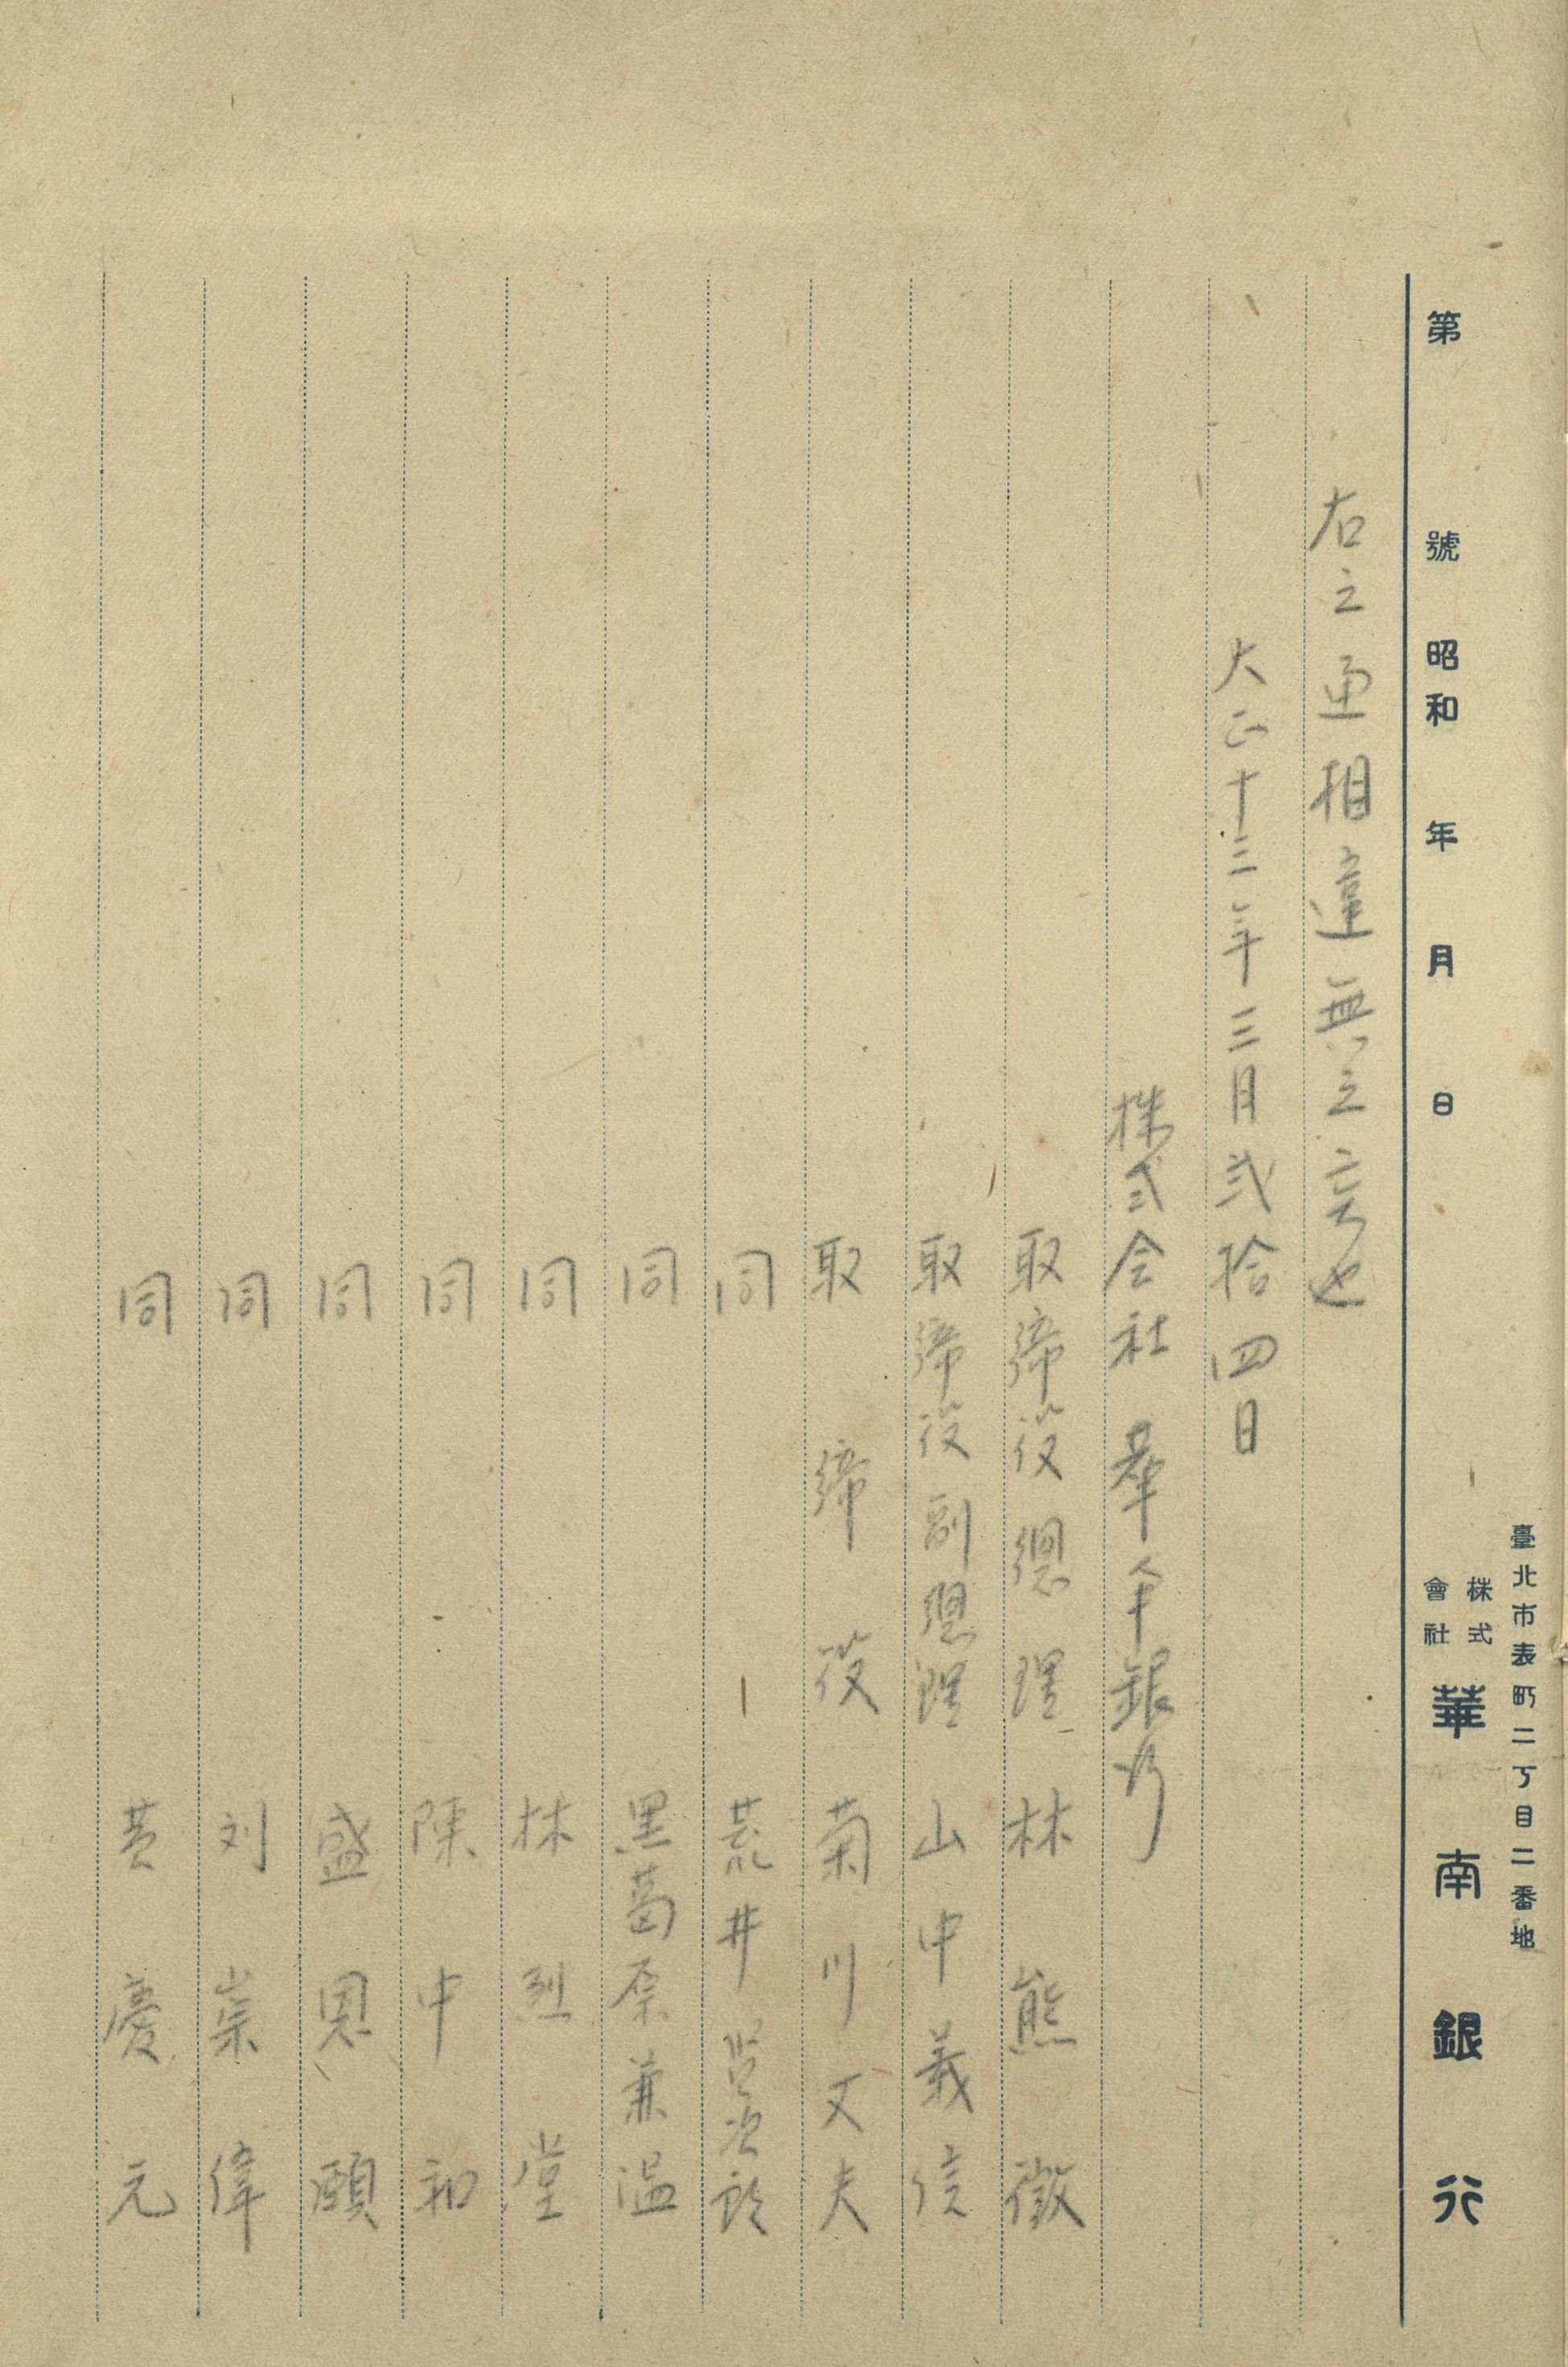 臺北市表町二丁目二番地
第 號 昭和 年 月 日 株式會社 華南銀行
右之通相違無之也
大正十三年三月弐拾四日
株式会社 華南銀行
取締役總理 林熊徴
取締役副總理 山中義信
取締役 菊川丈夫
同 荒井次郎
同 黒葛原兼温
同 林烈堂
同 陳中和
同 盛恩頤
同 刘崇偉
同 黄慶元